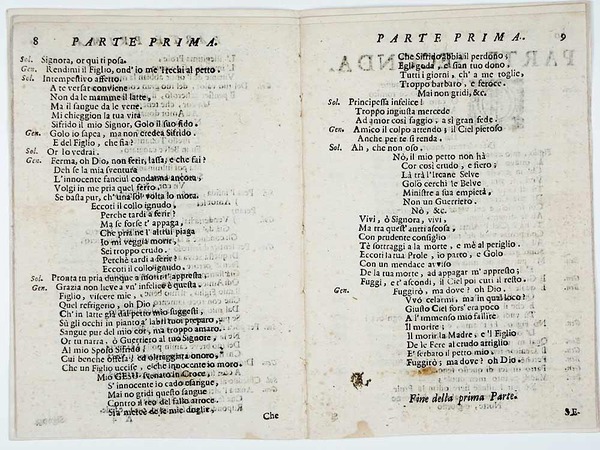 8 PARTE PRIMA.
Sol. Signora, or qui ti posa.
Gen. Rendimi il Figlio, ond' io me 'l rechi al petto.
Sol. Intempestivo affetto.
A te versar conviene
Non da le mamme il latte,
Ma il sangue da le vene.
Mi chieggion la tua vita
Sifrido il mio Signor, Golo il suo fido.
Gen. Golo io sapea, ma non credea Sifrido.
E del Figlio, che fia?
Sol. Or lo vedrai.
Gen. Ferma, oh Dio, non ferir, lassa, e che fai?
Deh se la mia sventura
L'innocente fanciul condanna ancora,
Volgi in me pria quel ferro.
Se basta pur, ch'una sol volta io mora.
Eccoti il collo ignudo,
Perche tardi a ferir?
Ma se forse t' appaga,
Che pria ne l' altrui piaga
Io mi veggia morir,
Sei troppo crudo.
Perche tardi a ferir?
Eccoti il collo ignudo.
Sol. Pronta tu pria dunque a morir t' appresta,
Gen. Grazia non lieve a un' infelice è questa.
Figlio, viscere mie,
Quel refrigerio, oh Dio,
Ch'in latte già dal petto mio suggesti,
Sù gli occhi in pianto a' labri tuoi preparo,
Sangue pur del mio cor, ma troppo amaro.
Or tu narra, ò Guerriero al tuo Signore,
Al mio Sposo Sifrido,
Cui benche offesa, ed oltraggiata onoro,
Che un Figlio uccise, e che innocente io moro.
Mio GESU svenato in Croce,
S' innocente io cado esangue,
Mai no gridi questo sangue
Contro il reo del fallo atroce.
Sia mercè de le mie doglie,
Che
PARTE PRIMA. 9
Che Sifrido abbia il perdono;
Egli goda, e sian tuo dono
Tutti i giorni, ch' a me toglie,
Troppo barbaro, e feroce.
Mai non gridi, &c.
Sol. Principessa infelice!
Troppo ingiusta mercede
Ad amor così saggio, a sì gran fede.
Gen. Amico il colpo attendo; il Ciel pietoso
Anche per te si renda.
Sol. Ah, che non oso,
Nò, il mio petto non hà
Cor così crudo, e fiero;
Là trà l'Ircane Selve
Golo cerchi le Belve
Ministre a sua empietà,
Non un Guerriero.
Nò, &c.
Vivi, ò Signora, vivi,
Ma tra quest' antri ascosa,
Con prudente consiglio
Tè sottraggi a la morte, e mè al periglio.
Eccoti la tua Prole, io parto, e Golo
Con un mendace avviso
De la tua morte, ad appagar m' appresto;
Fuggi, e t' ascondi, il Ciel poi curi il resto.
Gen. Fuggirò, ma dove? oh Dio.
Vuò celarmi, ma in qual loco?
Giusto Ciel fors' era poco
A l' immenso mio fallire
Il morire;
Il morir la Madre, e 'l Figlio
De le Fere al crudo artiglio
E' serbato il petto mio.
Fuggirò; ma dove? oh Dio.
Fine della prima Parte.
SE-